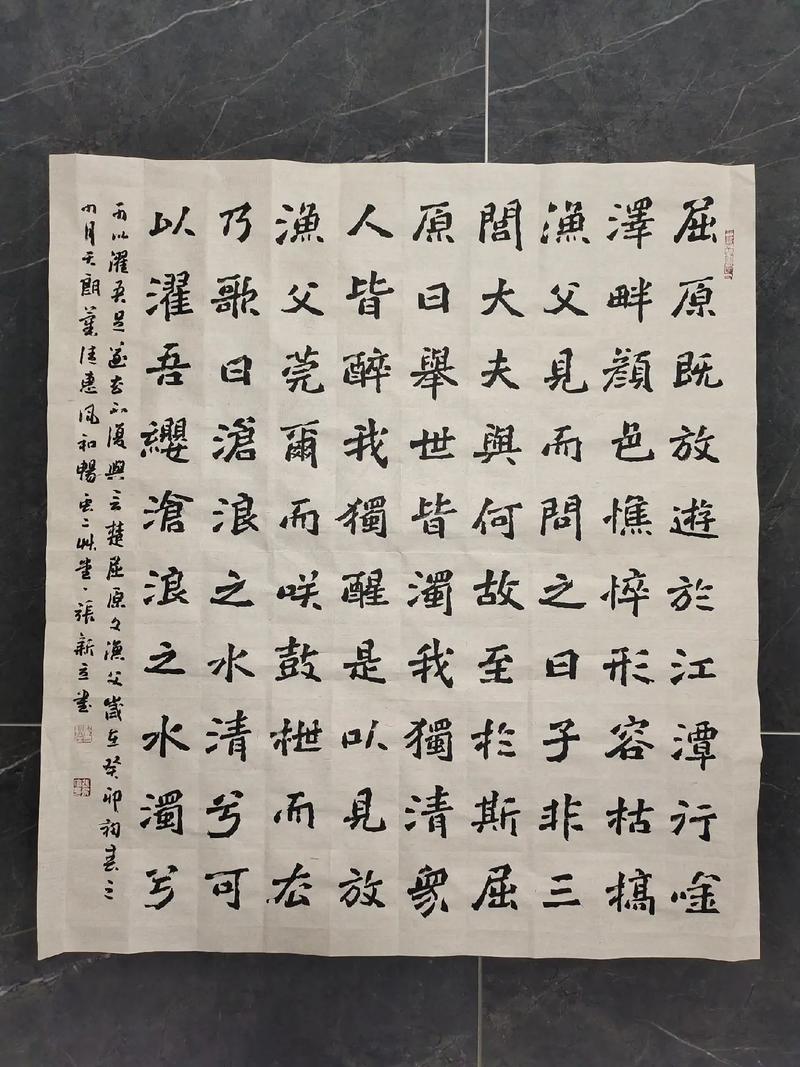 屈原既放遊於江潭行唫
澤畔顏色憔悴形容枯槁
漁父見而問之曰子非三
閭大夫與何故至於斯屈
原曰舉世皆濁我獨清衆
人皆醉我獨醒是以見放
漁父莞爾而咲鼓枻而去
乃歌曰滄浪之水清兮可
以濯吾纓滄浪之水濁兮
可以濯吾足遂去不復與言楚屈原之漁父歲在癸卯初春之
月天朗氣清惠風和暢艸堂張新立書